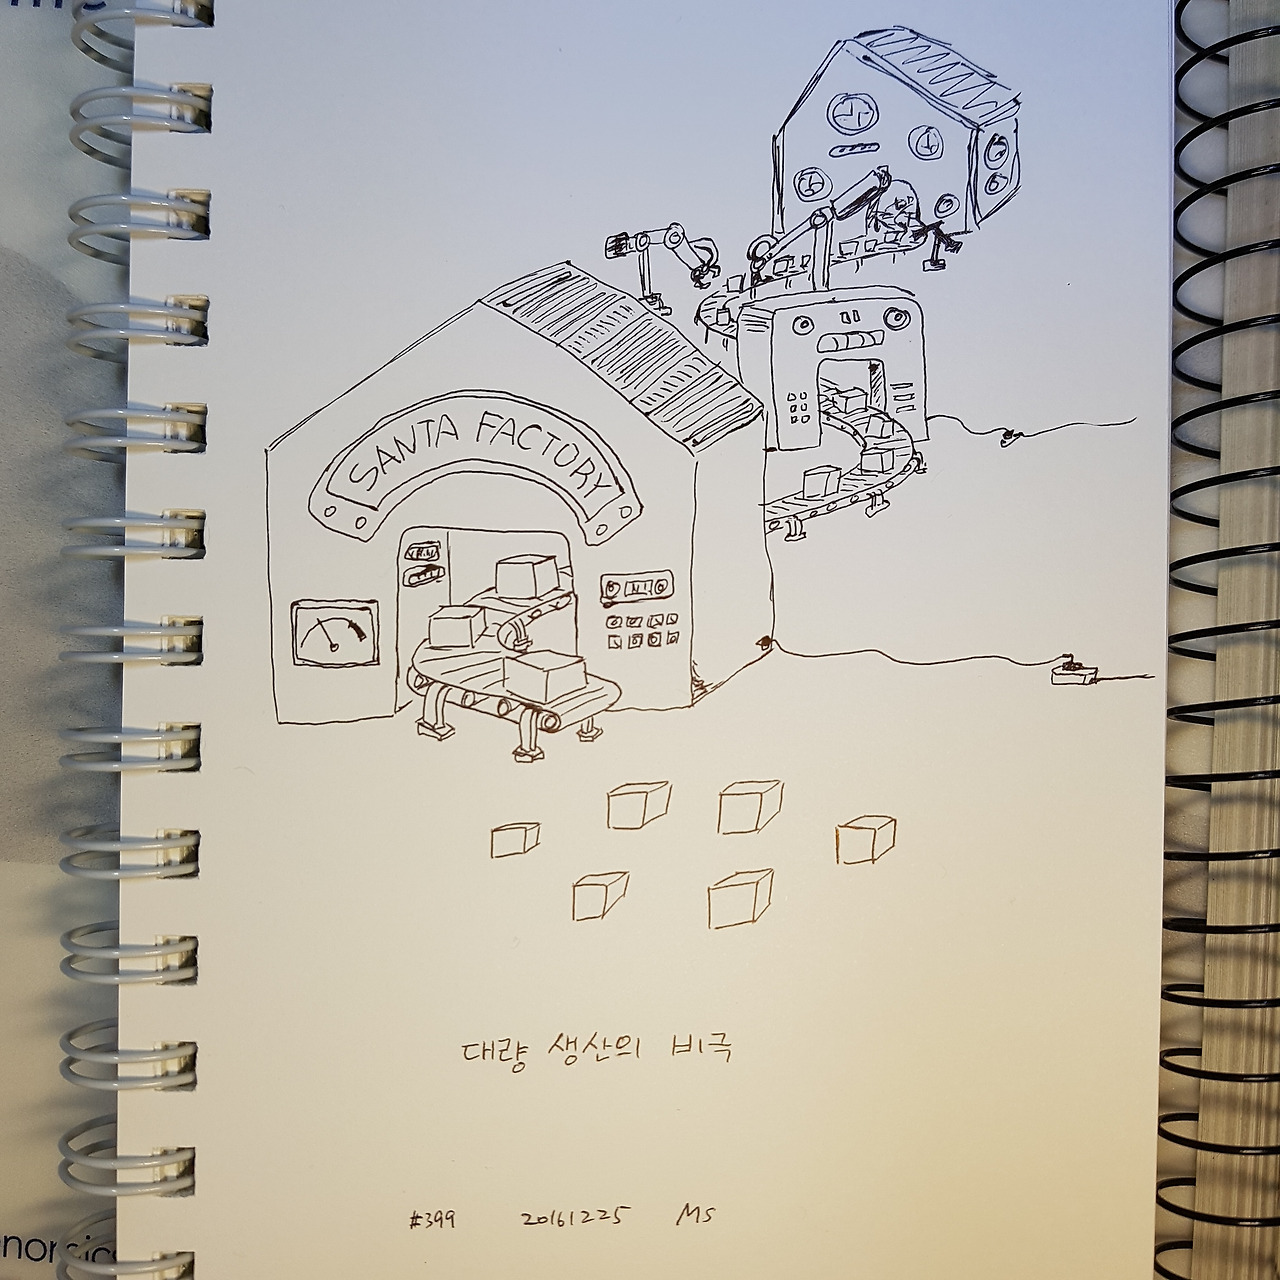 SANTA FACTORY
대량 생산의 비극
#399 20161225 MS